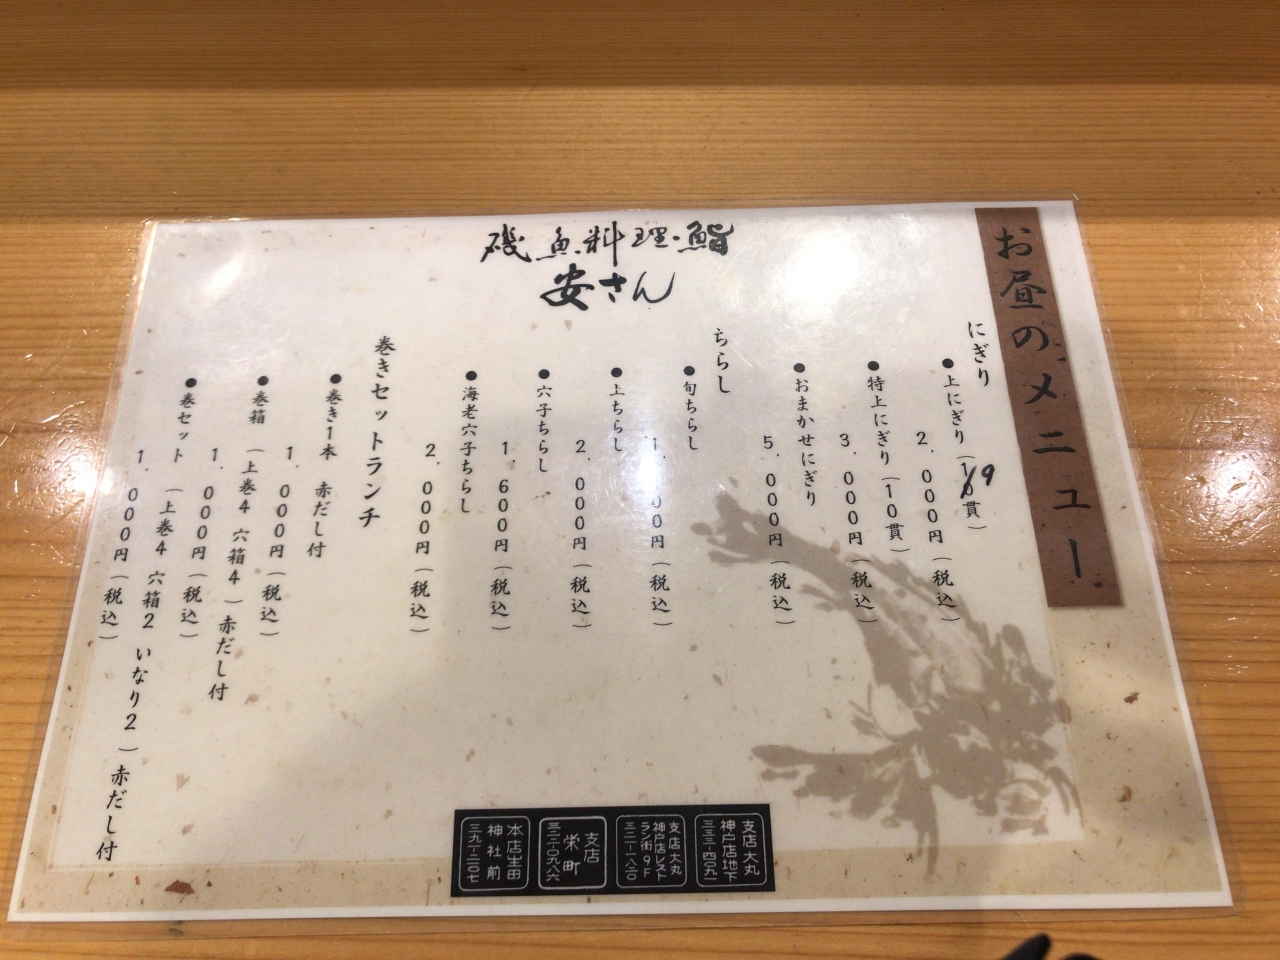 お昼のメニュー
磯魚料理・鮨
安さん
にぎり
●上にぎり(9貫)
2.000円(税込)
●特上にぎり(10貫)
3.000円(税込)
●おまかせにぎり
5.000円(税込)
ちらし
●旬ちらし
1.000円(税込)
●上ちらし
2.000円(税込)
●穴子ちらし
1.600円(税込)
●海老穴子ちらし
2.000円(税込)
巻きセットランチ
●巻き1本 赤だし付
1.000円(税込)
●巻箱 (上巻4 穴箱4)赤だし付
1.000円(税込)
●巻セット (上巻4 穴箱2 いなり2)赤だし付
1.000円(税込)
支店大丸
神戸店地下
三三三-四〇九一
支店大丸
神戸店レスト
ラン街9F
三二一-一八二〇
支店
栄町
三二二-〇九八六
本店生田
神社前
三九一-二三〇七